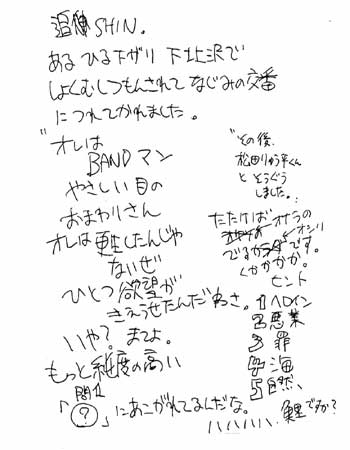 追伸 SHIN.
ある ひる下ガリ 下北沢で
しょくむしつもんされて なじみの交番
につれてかれました。
"オレは
BANDマン
やさしい目の
おまわりさん
オレは更生したんじゃ
ないぜ
ひとつ欲望が
きえうせたんだねっさ。
いや? まてよ。
もっと純度の高い
問1
「?」にあこがれてるんだな。
"その後、
松田りゅう平くん
と そうぐう
しました。
たたけば オナラの
オシリ
でるカラダです。
くかかかか。
ヒント
1 ヘロイン
2 悪業
3 罪
4 海
5 自然
鯉ですか?
ハハハハハ、